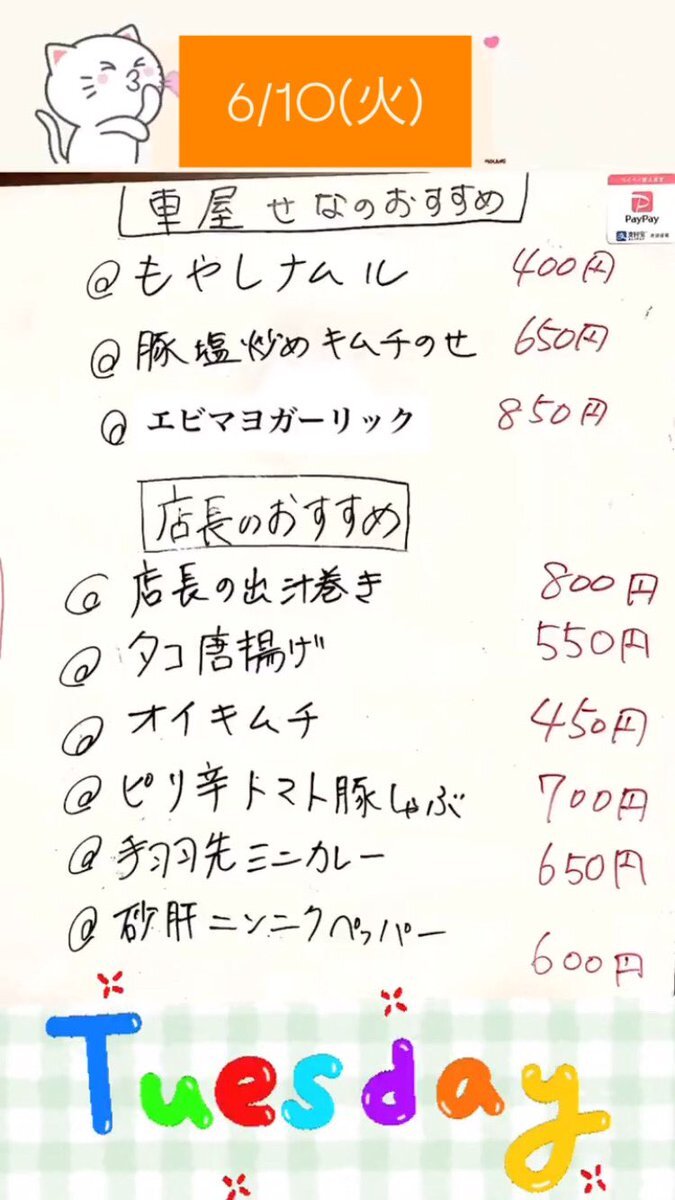 6/10(火)
車屋 せなのおすすめ
PayPay
@もやしナムル 400円
@豚塩炒めキムチのせ 650円
@エビマヨガーリック 850円
店長のおすすめ
@店長の出汁巻き 800円
@タコ唐揚げ 550円
@オイキムチ 450円
@ピリ辛トマト豚しゃぶ 700円
@手羽先ミニカレー 650円
@砂肝ニンニクペッパー 600円
Tuesday